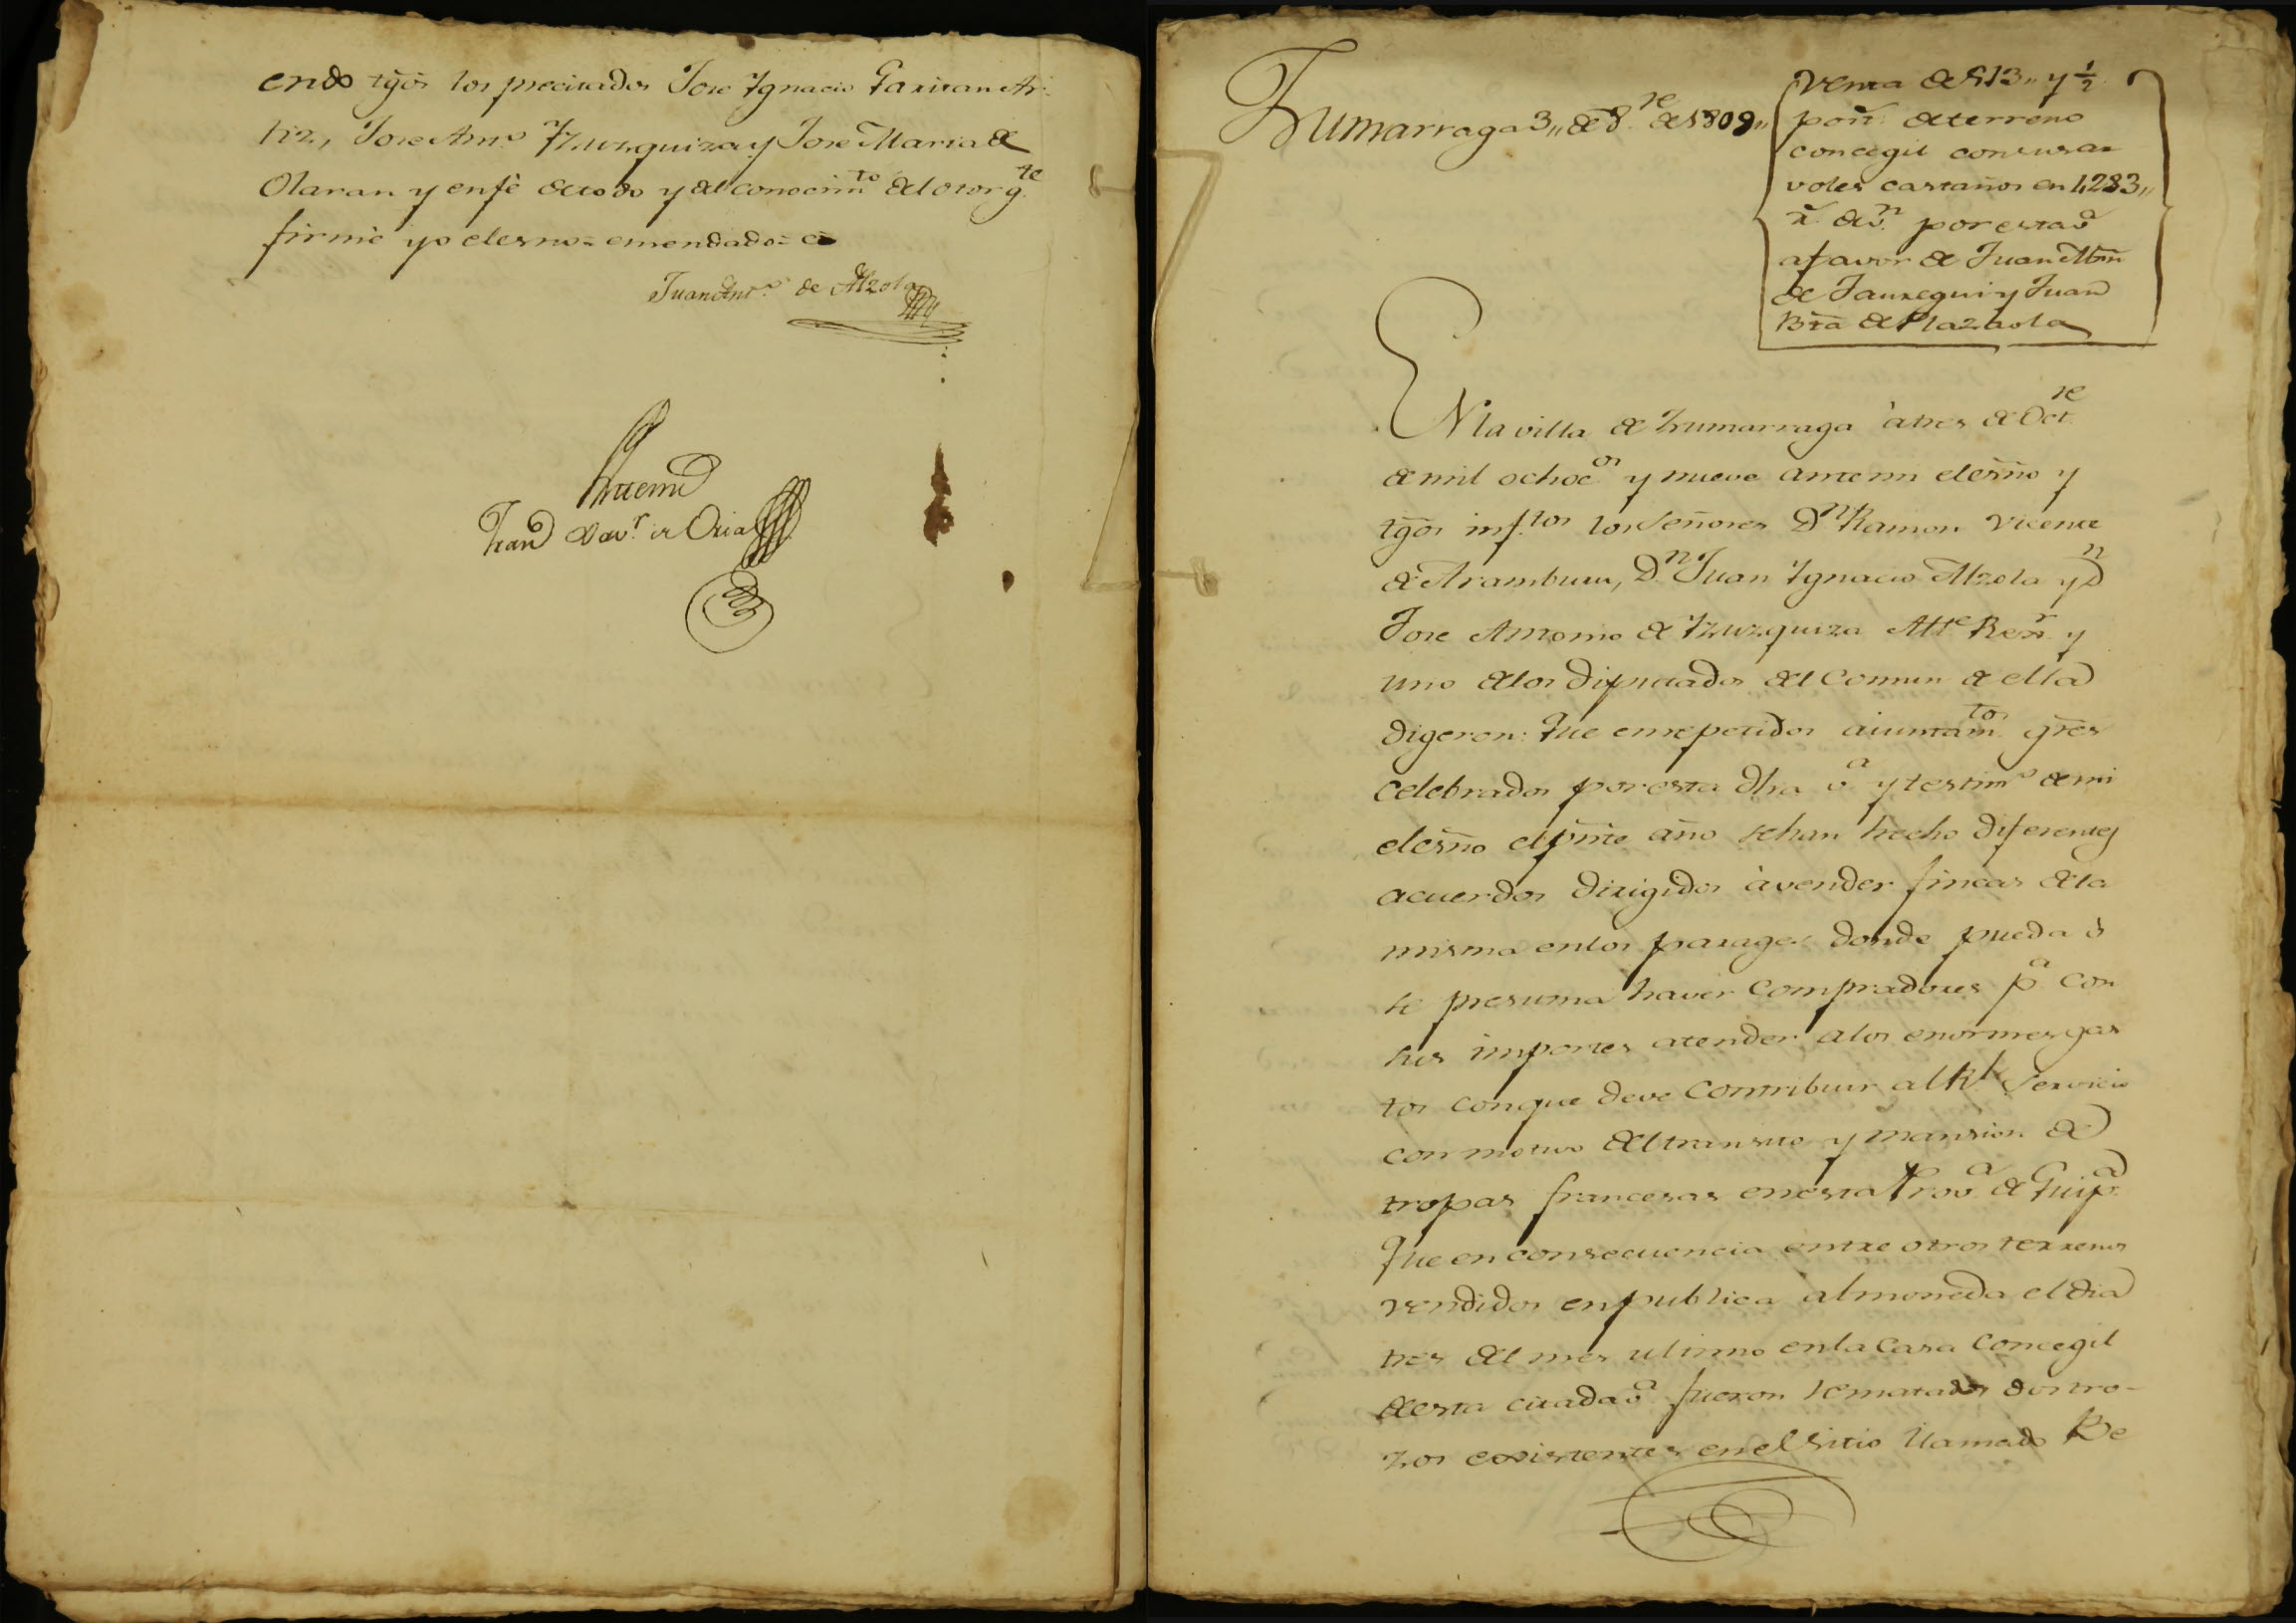 endo tgõs los precitados Jose Ygnacio Garitan Ar-
tiz, Jose Ant.º Yzuzquiza y Jose Maria de
Olaran y en fè de todo y del conocim.to del otorg.te
firmè yo el esno= emendado= e=
Juan Ant.º de Alzola
Antemi
Fran.co Xav.r de Oria
Zumarraga 3,, de 8.re de 1809,,
Venta de 513,, y ½
pon.s de terreno
concegil con sus ar
voles castaños en 1,283,,
r.s de v.n por esta v.a
a favor de Juan Mrñ
de Jauregui y Juan
Bta de Plazaola
EN la villa de Zumarraga à tres de Oct.re
de mil ochoc.os y nueve ante mi el esño y
tgõs inf.tos los Señores D.n Ramon Vicente
de Aramburu, D.n Juan Ygnacio Alzola y D.n
Jose Antonio de Yzuzquiza Alc.e Rex.r y
uno de los Diputados del Comun de ella
digeron: Que en repetidos aiuntam.tos grẽs
celebrados por esta dha v.a y testim.º de mi
el esño el pñte año se han hecho diferentes
acuerdos dirigidos à vender fincas de la
misma en los parages donde pueda ò
se presuma haver compradores p.a con
sus importes atender a los enormes gas
tos con que deve contribuir al R.l servicio
con motivo del transito y mansion de
tropas francesas en esta Prov.a de Guip.a
Que en consecuencia entre otros terrenos
vendidos en publica almoneda el dia
tres del mes ultimo en la Casa Concegil
de esta citada v.a fueron rematados dos tro-
zos existentes en el sitio llamado Be